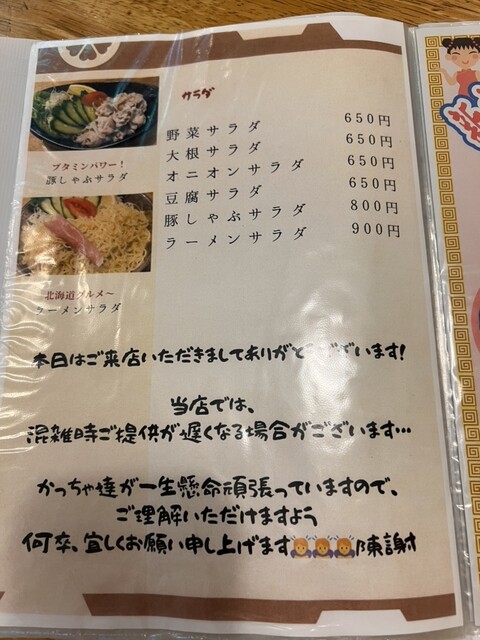 サラダ
野菜サラダ 650円
大根サラダ 650円
オニオンサラダ 650円
豆腐サラダ 650円
豚しゃぶサラダ 800円
ラーメンサラダ 900円
ブタミンパワー！
豚しゃぶサラダ
北海道グルメ～
ラーメンサラダ
本日はご来店いただきましてありがとうございます!
当店では、
混雑時ご提供が遅くなる場合がございます…
かっちゃ達が一生懸命頑張っていますので、
ご理解いただけますよう
何卒、宜しくお願い申し上げます🙇🙇🙇陳謝